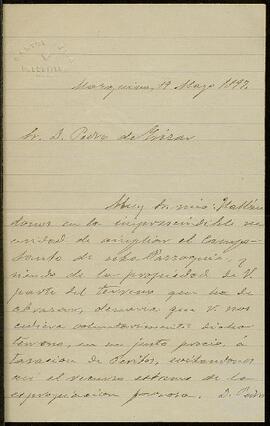 Marquina, 19 Mayo 1897.
Sr. D. Pedro de
Muy Sr. mio: Hallán
donos en la imprescindible ne
cesidad de ampliar el Campo
Santo de esta Parroquia, y
siendo de la propiedad de V.
parte del terreno que ha de
abrazar, desearia que V. nos
cediera voluntariamente dicho
terreno, en su justo precio, á
tasacion de Peritos, evitandonos
asi el recurso estremo de la
expropiacion forzosa. D. Pedro